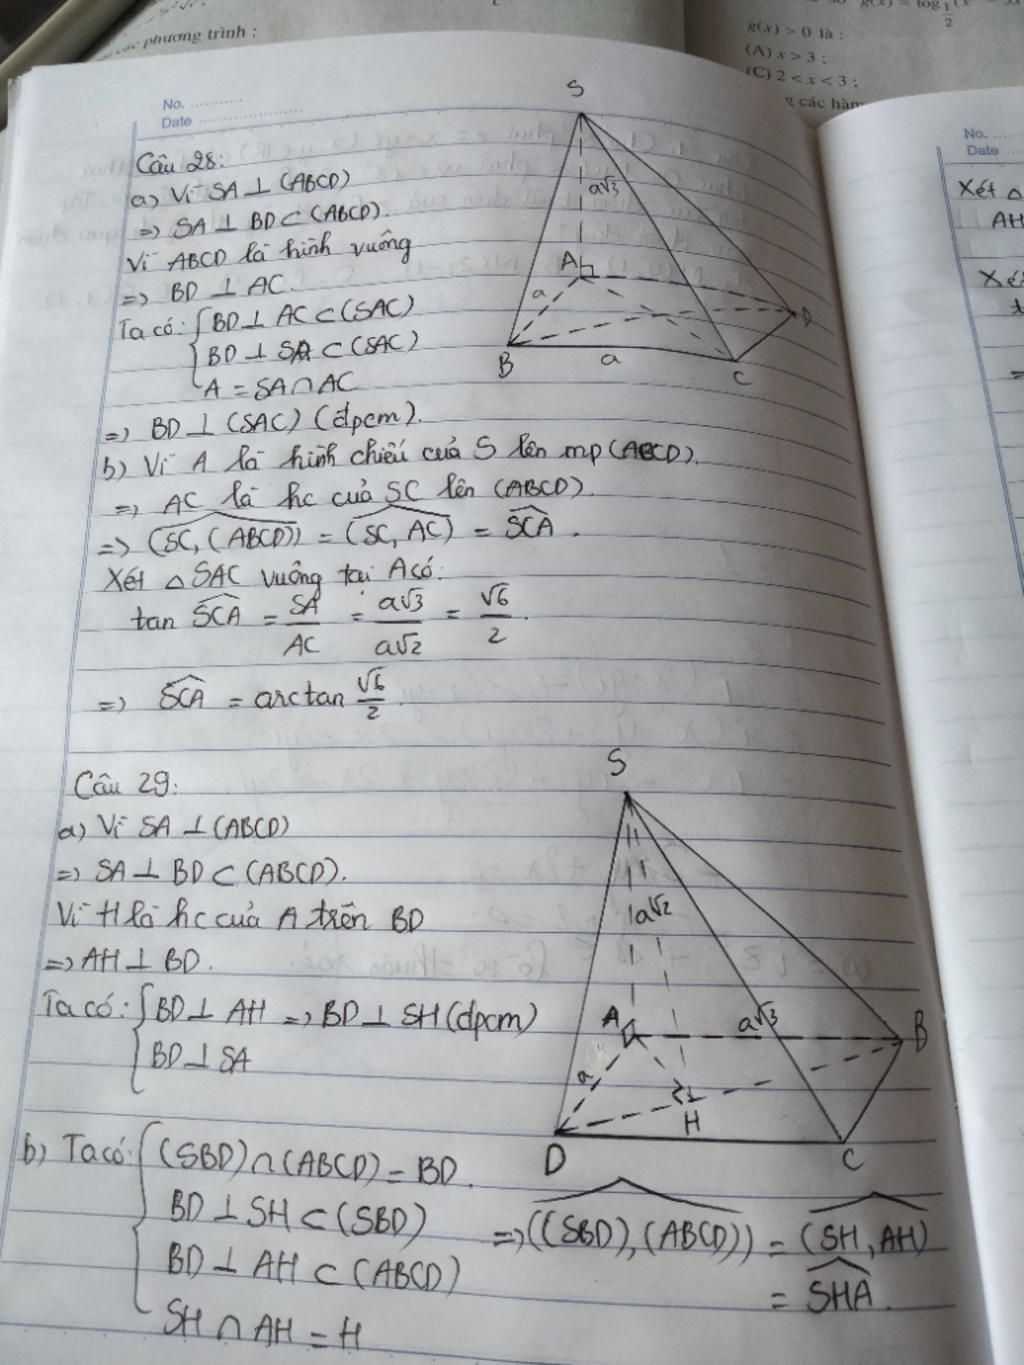 các phương trình :
g(x) > 0 là :
(A) x > 3 ;
(C) 2 < x < 3 ;
các hàm
No.
Date
Câu 28:
a) Vì SA ⊥ (ABCD)
=> SA ⊥ BD ⊂ (ABCD).
Vì ABCD là hình vuông
=> BD ⊥ AC.
Ta có: { BD ⊥ AC ⊂ (SAC)
BD ⊥ SA ⊂ (SAC)
A = SA ∩ AC
=> BD ⊥ (SAC) (đpcm).
S
a√3
A
a
B
a
C
D
b) Vì A là hình chiếu của S lên mp (ABCD).
=> AC là hc của SC lên (ABCD).
=> (SC, (ABCD)) = (SC, AC) = SCA.
Xét △ SAC vuông tại A có:
tan SCA = SA/AC = a√3/a√2 = √6/2.
=> SCA = arctan √6/2.
Câu 29:
a) Vì SA ⊥ (ABCD)
=> SA ⊥ BD ⊂ (ABCD).
Vì H là hc của A trên BD
=> AH ⊥ BD.
Ta có: { BD ⊥ AH => BD ⊥ SH (đpcm)
BD ⊥ SA
S
a√2
A
a√3
B
a
H
D
C
b) Ta có: { (SBD) ∩ (ABCD) = BD.
BD ⊥ SH ⊂ (SBD)
BD ⊥ AH ⊂ (ABCD)
SH ∩ AH = H
=> ((SBD), (ABCD)) = (SH, AH)
= SHA.
No.
Date
Xét △
AH
Xét